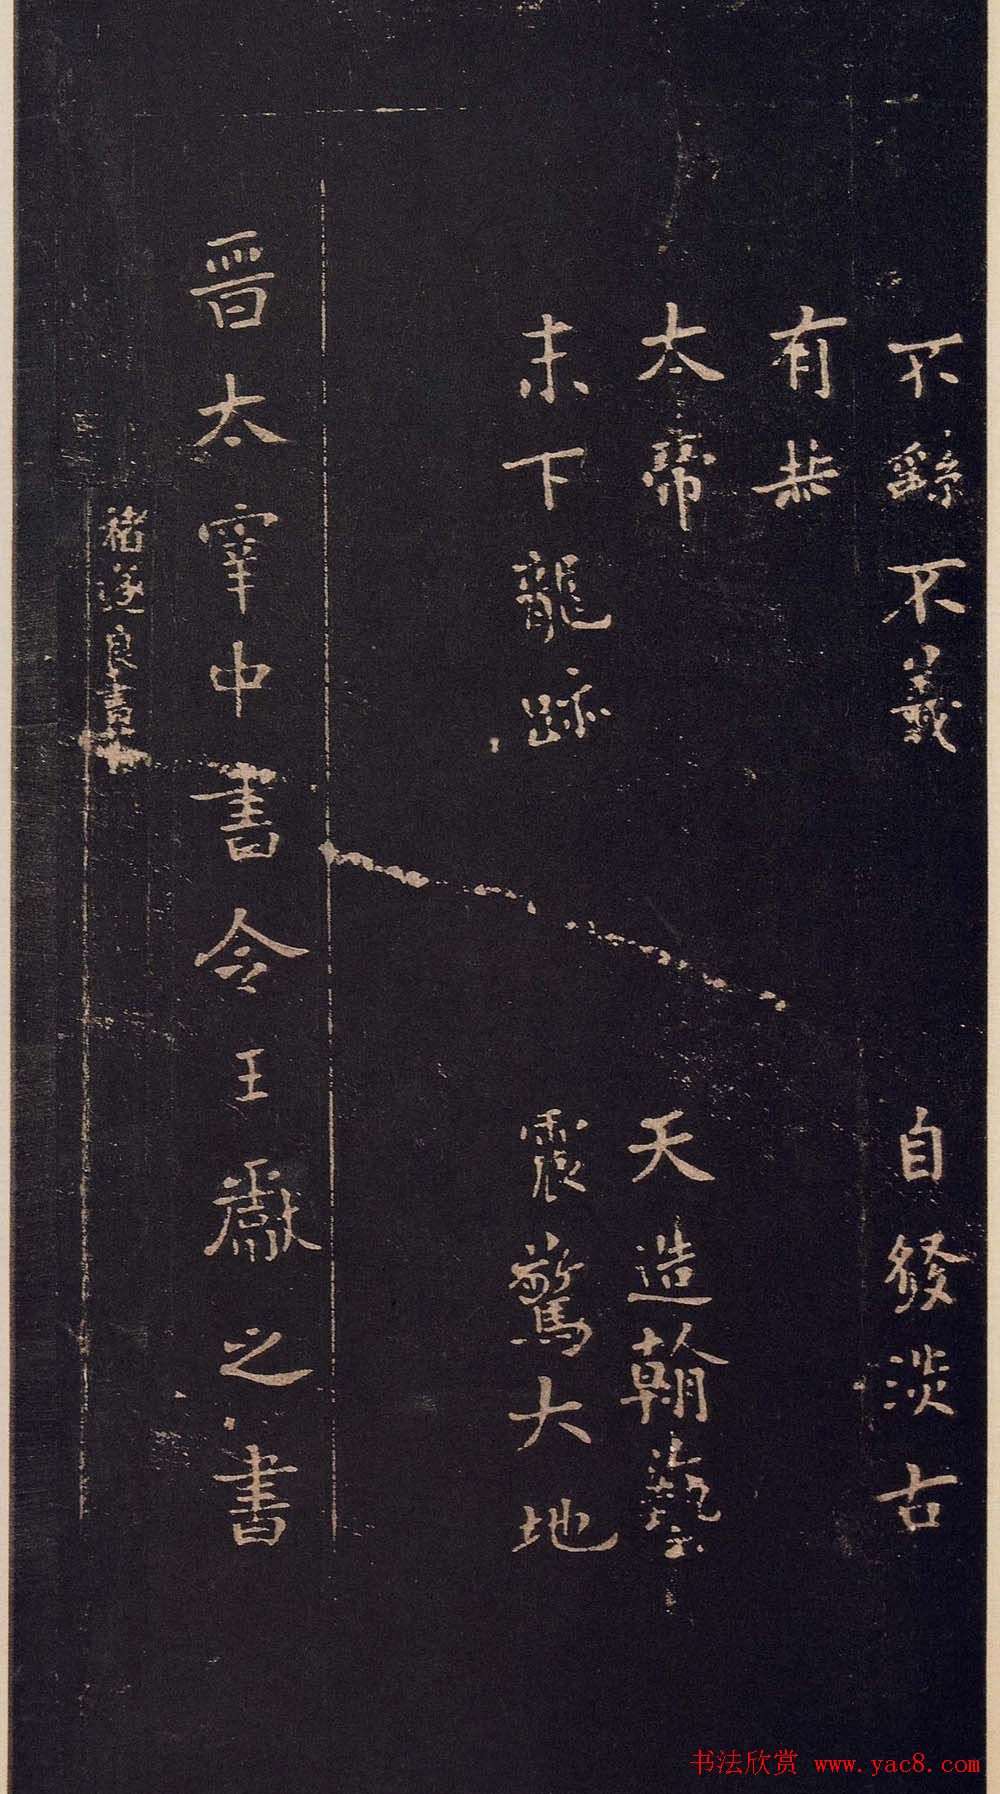 不繇不羲 自發淡古
有恭
太帝 天造翰藝
未下龍跡 震驚大地
晋太宰中書令王獻之書
褚遂良書
书法欣赏 www.yac8.com